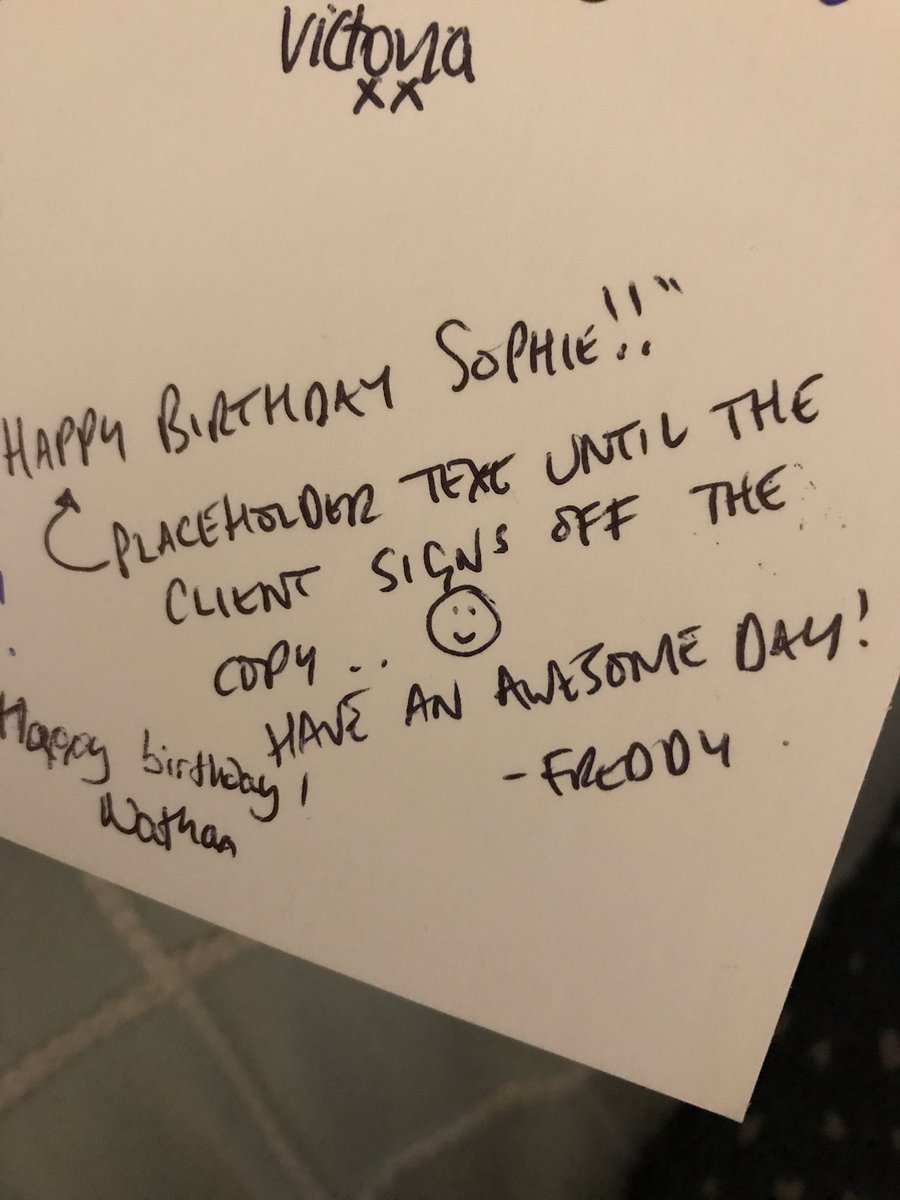 Victoria
xx
HAPPY BIRTHDAY SOPHIE!!"
PLACEHOLDER TEXT UNTIL THE
CLIENT SIGNS OFF THE
COPY..
HAVE AN AWESOME DAY!
-FREDDY
Happy birthday!
Nathan